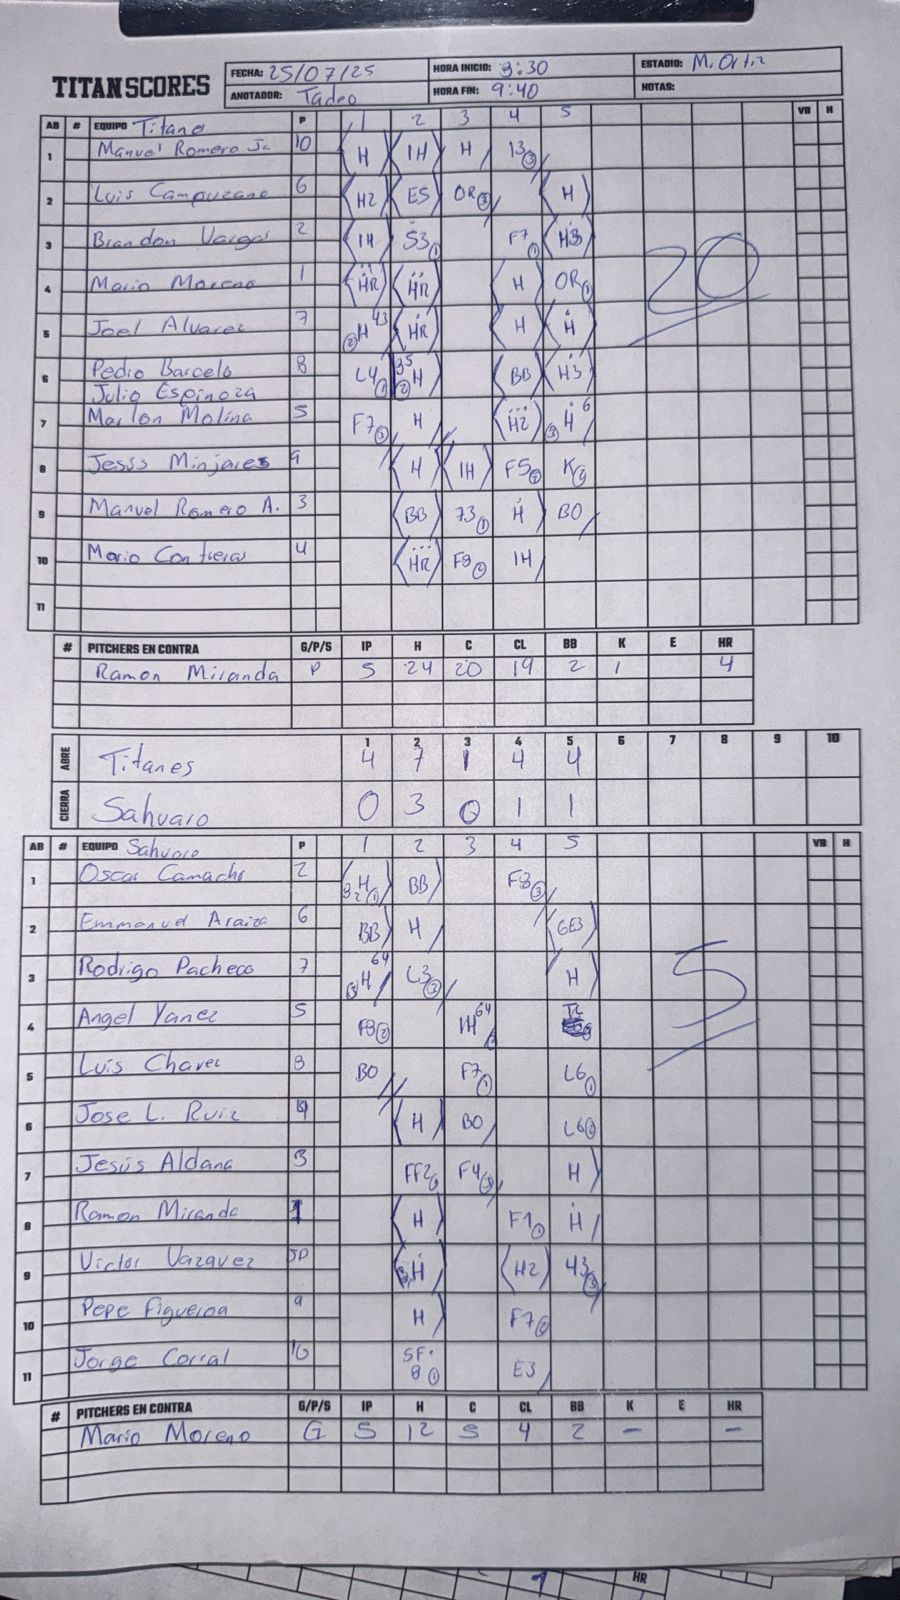 TITANSCORES
FECHA: 25/07/25 HORA INICIO: 8:30 ESTADIO: M. Ortiz
ANOTADOR: Tadeo HORA FIN: 9:40 NOTAS:
AB # EQUIPO Titanes P 1 2 3 4 5 VB H
1 Manuel Romero Jr. 10 H IH H 13③
2 Luis Campuzano 6 H2 E5 OR③ H
3 Brandon Vargas 2 IH 53① F7① H3
4 Mario Moreno 1 HR HR H OR①
5 Joel Alvarez 7 H 43 ② HR H H
6 Pedro Barcelo 8 L4① H 35 ② BB H3
Julio Espinoza
7 Marlon Molina 5 F7③ H H2 H 6 ②
8 Jesús Minjares 9 H IH F5② K③
9 Manuel Romero A. 3 BB 73① H BO
10 Mario Contreras 4 HR F8② IH
11
20
# PITCHERS EN CONTRA G/P/S IP H C CL BB K E HR
Ramon Miranda P 5 24 20 19 2 1 4
1 2 3 4 5 6 7 8 9 10
ABRE Titanes 4 7 1 4 4
CIERRA Sahuaro 0 3 0 1 1
AB # EQUIPO Sahuaro P 1 2 3 4 5 VB H
1 Oscar Camacho 2 H 82① BB F8③
2 Emmanuel Araiza 6 BB H 6E3
3 Rodrigo Pacheco 7 H 64 ③ L3③ H
4 Angel Yanez 5 F8② IH 64
5 Luis Chavez 8 BO F7① L6①
6 Jose L. Ruiz H BO L6②
7 Jesús Aldana 3 FF2 F4③ H
8 Ramon Miranda 1 H F1① H
9 Victor Vazquez JD H H2 43③
10 Pepe Figueroa 9 H F7②
11 Jorge Corral 10 SF. 8① E3
5
# PITCHERS EN CONTRA G/P/S IP H C CL BB K E HR
Mario Moreno G 5 12 5 4 2 - -
HR